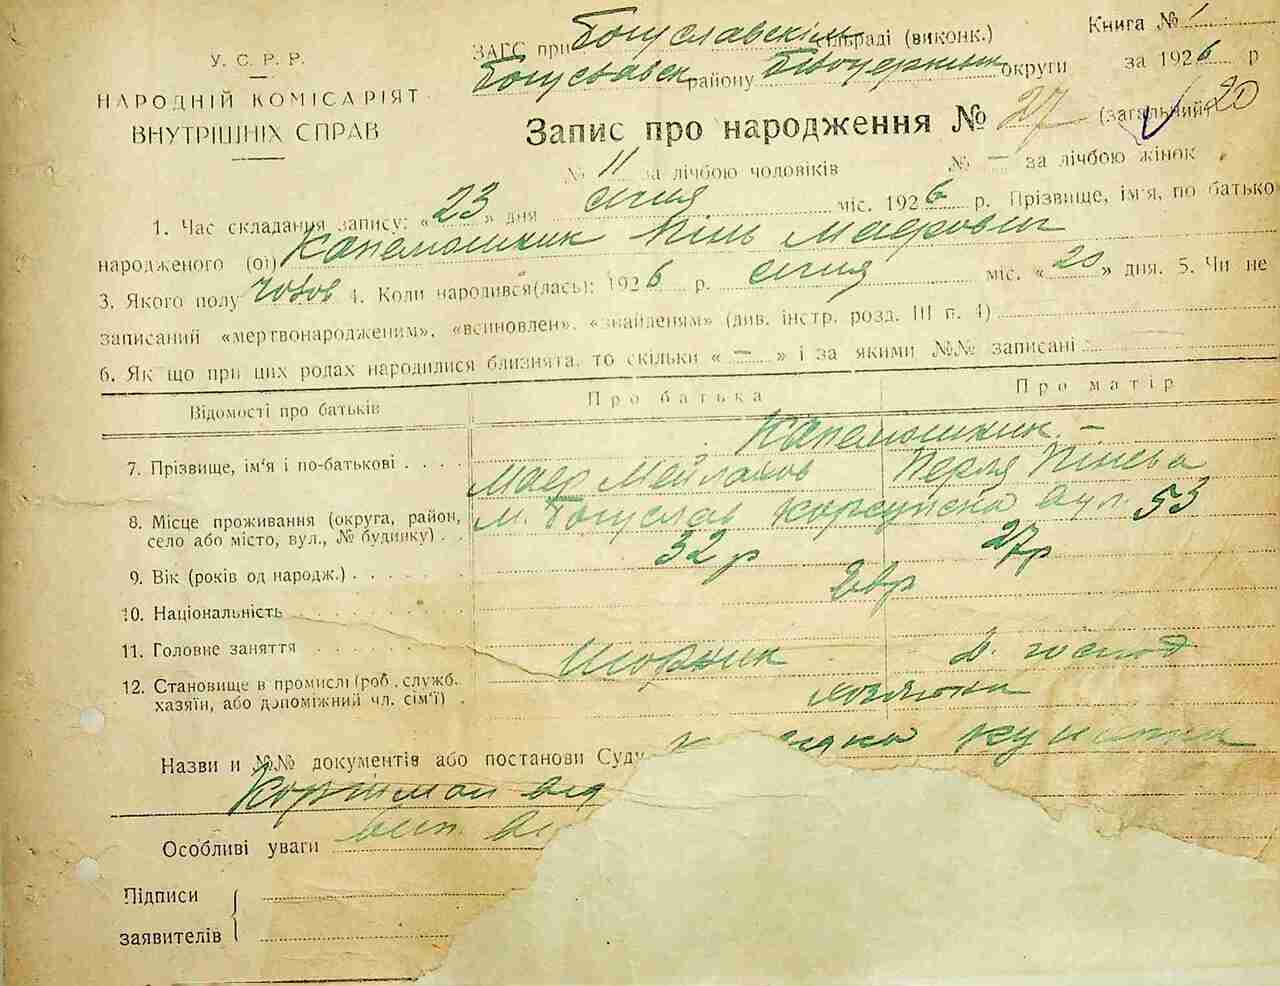 У. С. Р. Р.
НАРОДНІЙ КОМІСАРІЯТ
ВНУТРІШНІХ СПРАВ
ЗАГС при Богуславскім сільраді (виконк.)
Книга № 1
Богуславск району Білоцерким округи за 1926 р
Запис про народження № 27 (загальний) 20
№ 11 за лічбою чоловіків № — за лічбою жінок
1. Час складання запису: «23» дня січня міс. 1926 р. Прізвище, ім'я, по батько
народженого (ої)
3. Якого полу чолов 4. Коли народився(лась): 1926 р. січня міс. «20» дня. 5. Чи не
записаний «мертвонародженим», «всиновлен», «знайденям» (див. інстр. розд. III п. 4)
6. Як що при цих родах народилися близнята, то скільки « — » і за якими №№ записані
Відомості про батьків
Про батька
Про матір
7. Прізвище, ім'я і по-батькові
Маер Мейлахов Перля
8. Місце проживання (округа, район,
село або місто, вул., № будинку)
м. Богуслав Корсунска вул. 53
9. Вік (років од народж.) 32 р 27 р
10. Національність Євр
11. Головне заняття
Шорник д. господ
12. Становище в промислі (роб. служб.
хазяїн, або допоміжний чл. сім'ї)
Назви и №№ документів або постанови Суду
Особливі уваги
Підписи
заявителів